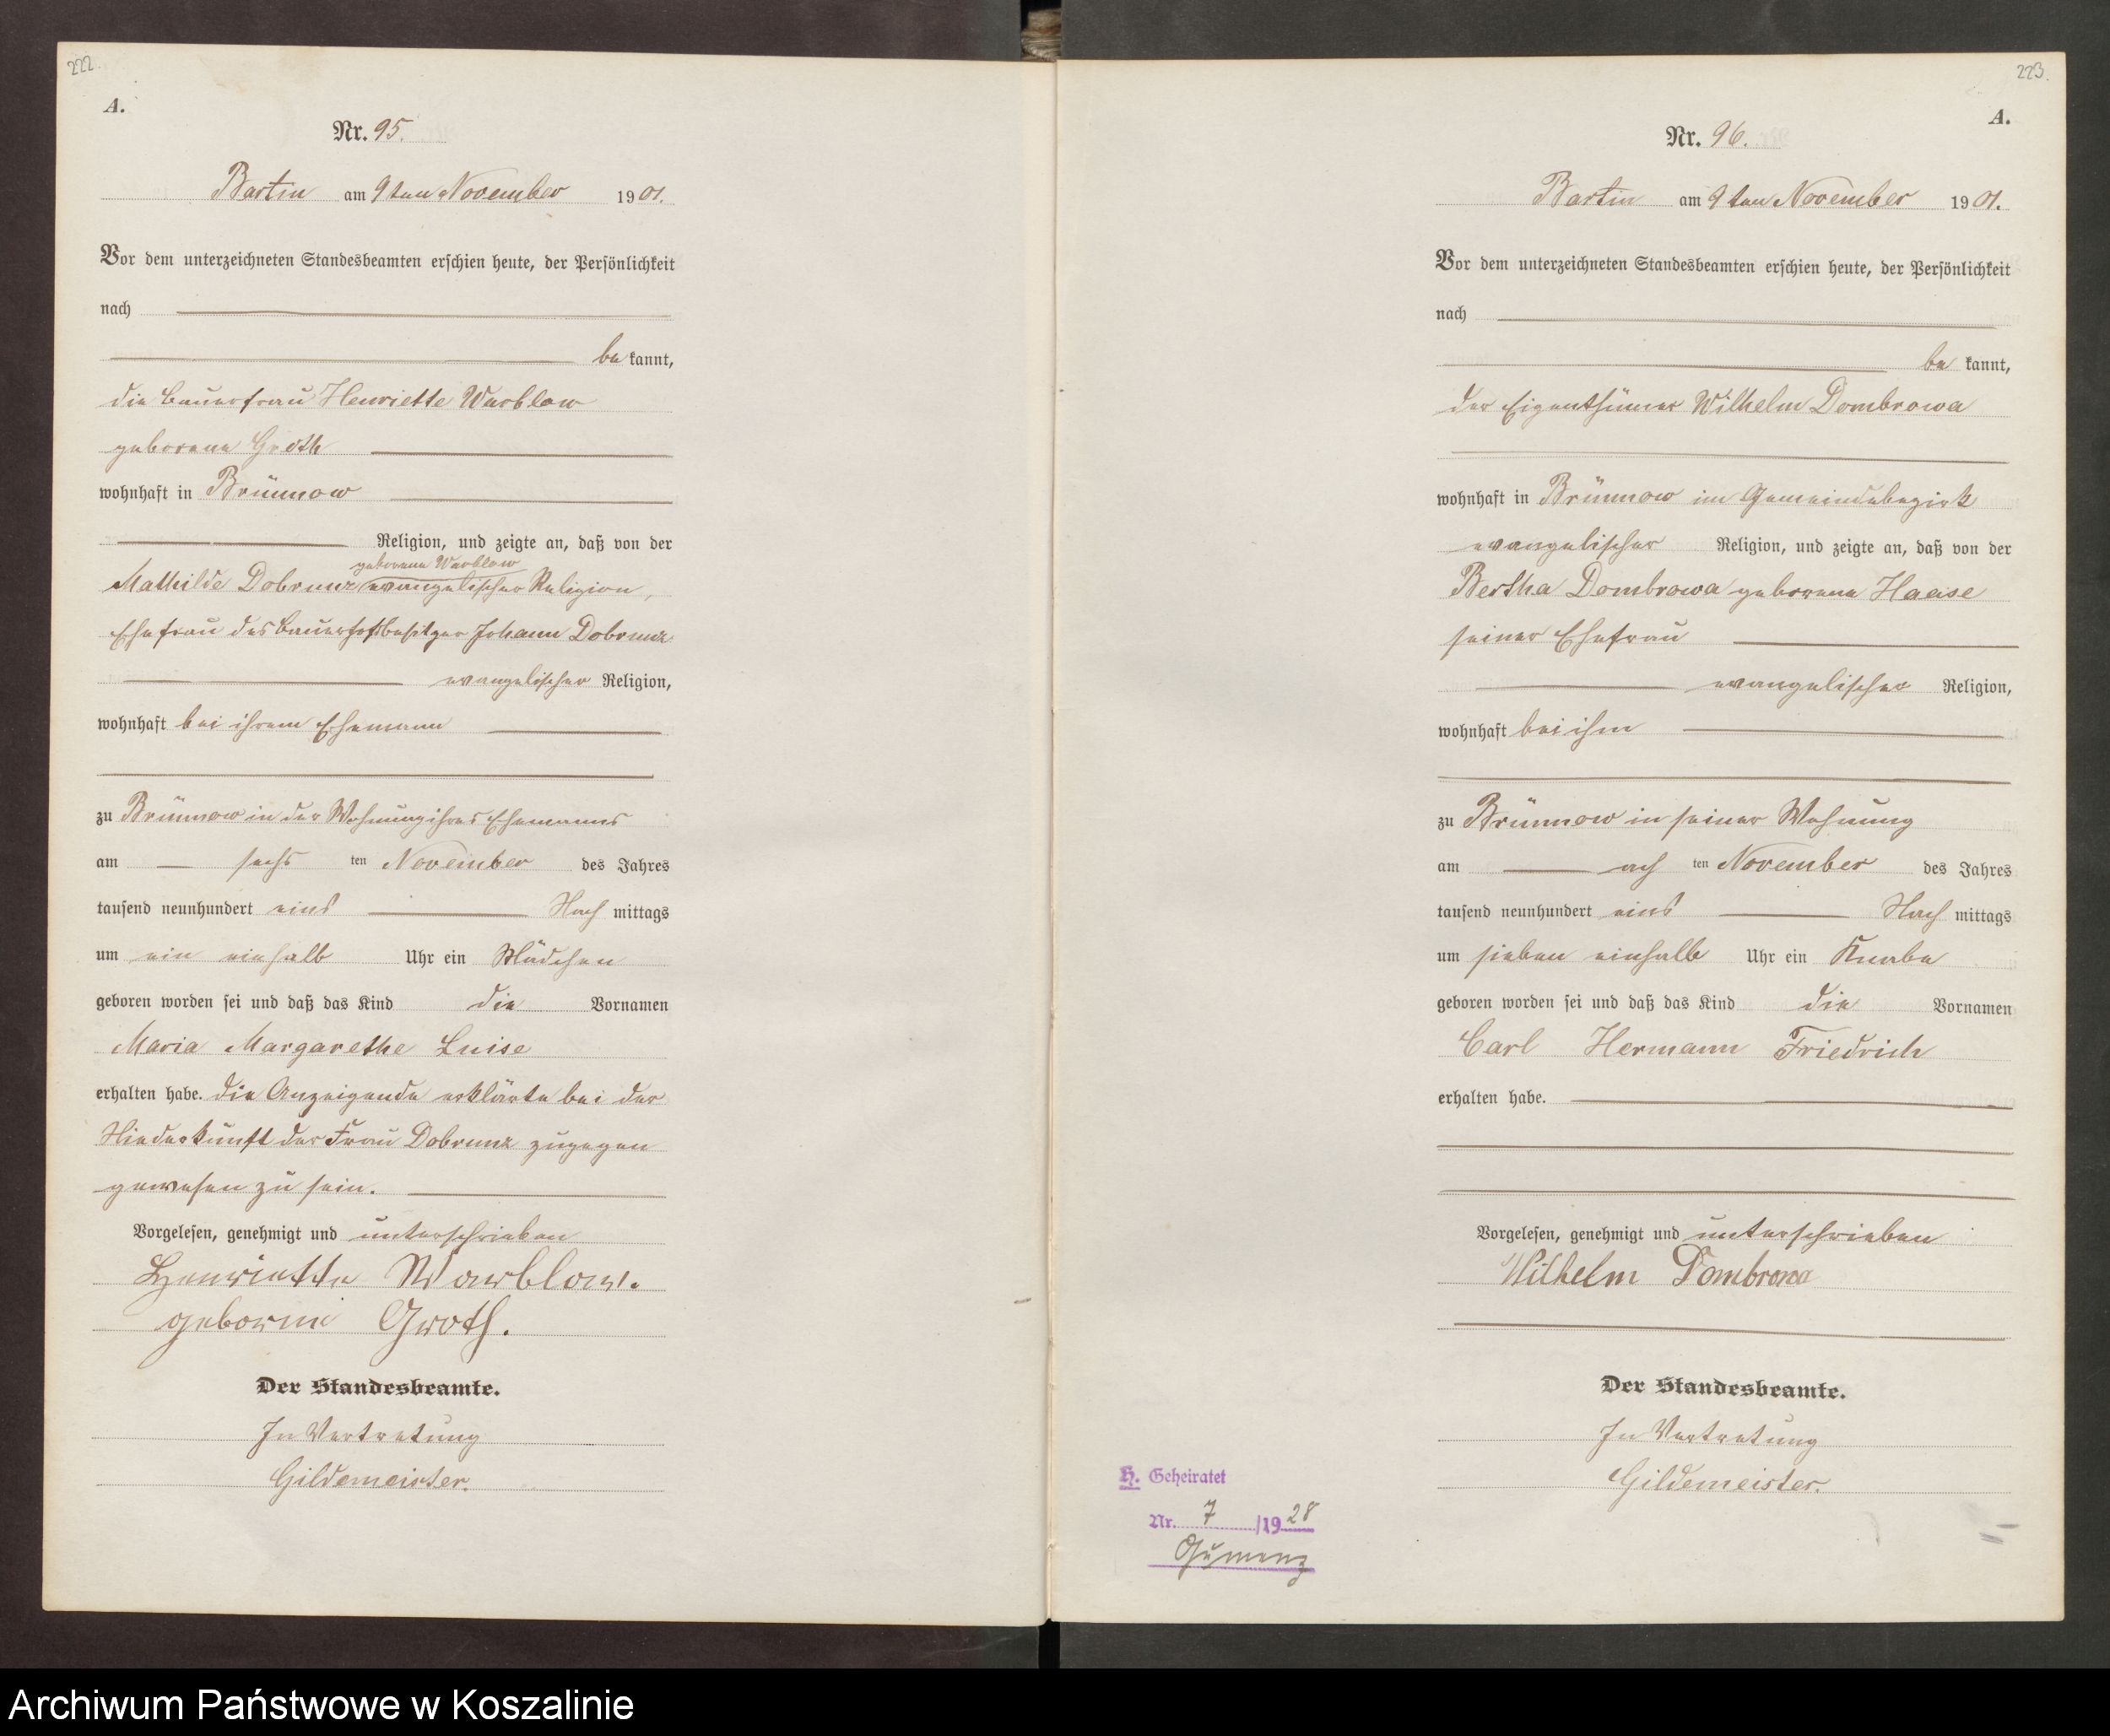 222.
A.
Nr. 95.
Bartin am 9ten November 1901.
Vor dem unterzeichneten Standesbeamten erschien heute, der Persönlichkeit
nach
be kannt,
die Bauerfrau Henriette Warblow
geborene Groth
wohnhaft in Brünnow
Religion, und zeigte an, daß von der
geborene Warblow
Mathilde Dobrunz evangelischer Religion,
Ehefrau des Bauerhofsbesitzer Johann Dobrunz
evangelischer Religion,
wohnhaft bei ihrem Ehemann
zu Brünnow in der Wohnung ihres Ehemanns
am sechs ten November des Jahres
tausend neunhundert eins Nach mittags
um ein einhalb Uhr ein Mädchen
geboren worden sei und daß das Kind die Vornamen
Maria Margarethe Luise
erhalten habe. die Anzeigende erklärte bei der
Niederkunft der Frau Dobrunz zugegen
gewesen zu sein.
Vorgelesen, genehmigt und unterschrieben
Henriette Warblow.
geborne Groth.
Der Standesbeamte.
In Vertretung
Gildemeister.
223.
A.
Nr. 96.
Bartin am 9ten November 1901.
Vor dem unterzeichneten Standesbeamten erschien heute, der Persönlichkeit
nach
be kannt,
der Eigenthümer Wilhelm Dombrowa
wohnhaft in Brünnow im Gemeindebezirk
evangelischer Religion, und zeigte an, daß von der
Bertha Dombrowa geborene Haase
seiner Ehefrau
evangelischer Religion,
wohnhaft bei ihm
zu Brünnow in seiner Wohnung
am ach ten November des Jahres
tausend neunhundert eins Nach mittags
um sieben einhalb Uhr ein Knabe
geboren worden sei und daß das Kind die Vornamen
Carl Hermann Friedrich
erhalten habe.
Vorgelesen, genehmigt und unterschrieben
Wilhelm Dombrowa
Der Standesbeamte.
In Vertretung
Gildemeister.
H. Geheiratet
Nr. 7 /1928
Gumenz
Archiwum Państwowe w Koszalinie